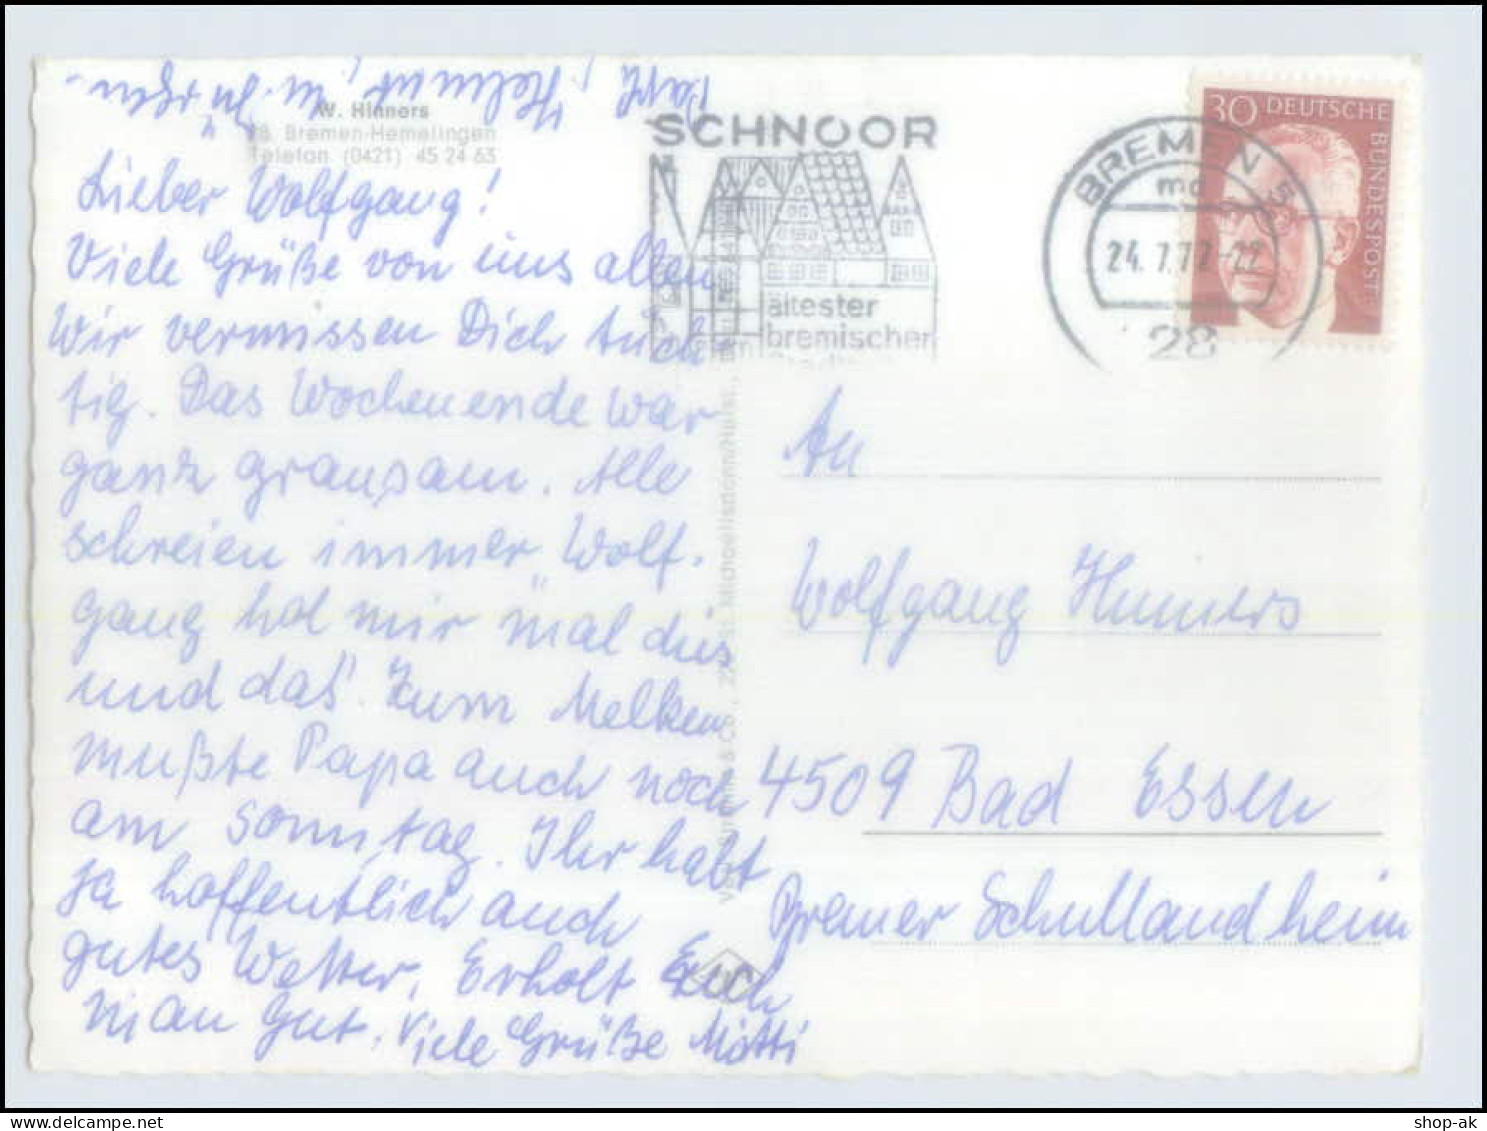 W. Hinners
28 Bremen-Hemelingen
Telefon (0421) 45 24 63
Lieber Wolfgang!
Viele Grüße von uns allen
Wir vermissen Dich tüch
tig. Das Wochenende war
ganz grausam. Alle
schreien immer Wolf.
gang hol mir "mal dies
und das". Zum Melken
mußte Papa auch noch
am Sonntag. Ihr habt
ja hoffentlich auch
gutes Wetter, Erholt Euch
man gut. Viele Grüße Mutti
Papa, Helmut, u. Jürgen
SCHNOOR
ältester
bremischer
BREMEN 5
mc
24.7.72-22
28
30 DEUTSCHE BUNDESPOST
An
Wolfgang Hinners
4509 Bad Essen
Bremer Schullandheim